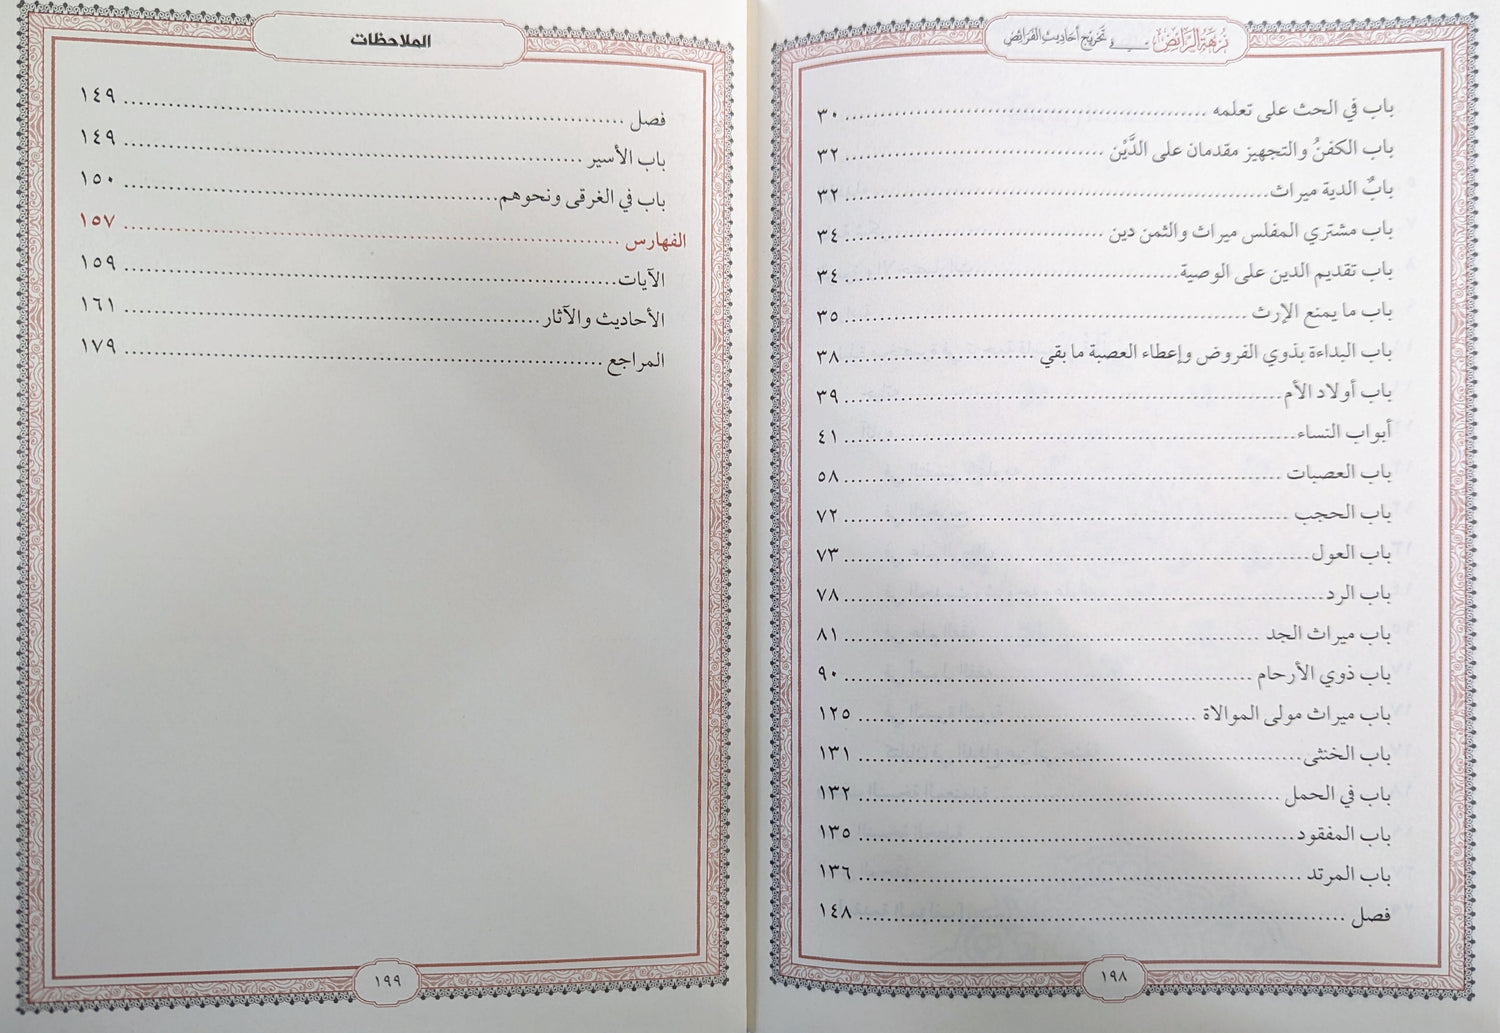 نزهة الرائض في تخريج أحاديث الفرائض
باب في الحث على تعلمه ........ ٣٠
باب الكفنُ والتجهيز مقدمان على الدَّيْن ........ ٣٢
بابٌ الدية ميراث ........ ٣٢
باب مشتري المفلس ميراث والثمن دين ........ ٣٤
باب تقديم الدين على الوصية ........ ٣٤
باب ما يمنع الإرث ........ ٣٥
باب البداءة بذوي الفروض وإعطاء العصبة ما بقي ........ ٣٨
باب أولاد الأم ........ ٣٩
أبواب النساء ........ ٤١
باب العصبات ........ ٥٨
باب الحجب ........ ٧٢
باب العول ........ ٧٣
باب الرد ........ ٧٨
باب ميراث الجد ........ ٨١
باب ذوي الأرحام ........ ٩٠
باب ميراث مولى الموالاة ........ ١٢٥
باب الخنثى ........ ١٣١
باب في الحمل ........ ١٣٢
باب المفقود ........ ١٣٥
باب المرتد ........ ١٣٦
فصل ........ ١٤٨
١٩٨
الملاحظات
فصل ........ ١٤٩
باب الأسير ........ ١٤٩
باب في الغرقى ونحوهم ........ ١٥٠
الفهارس ........ ١٥٧
الآيات ........ ١٥٩
الأحاديث والآثار ........ ١٦١
المراجع ........ ١٧٩
١٩٩